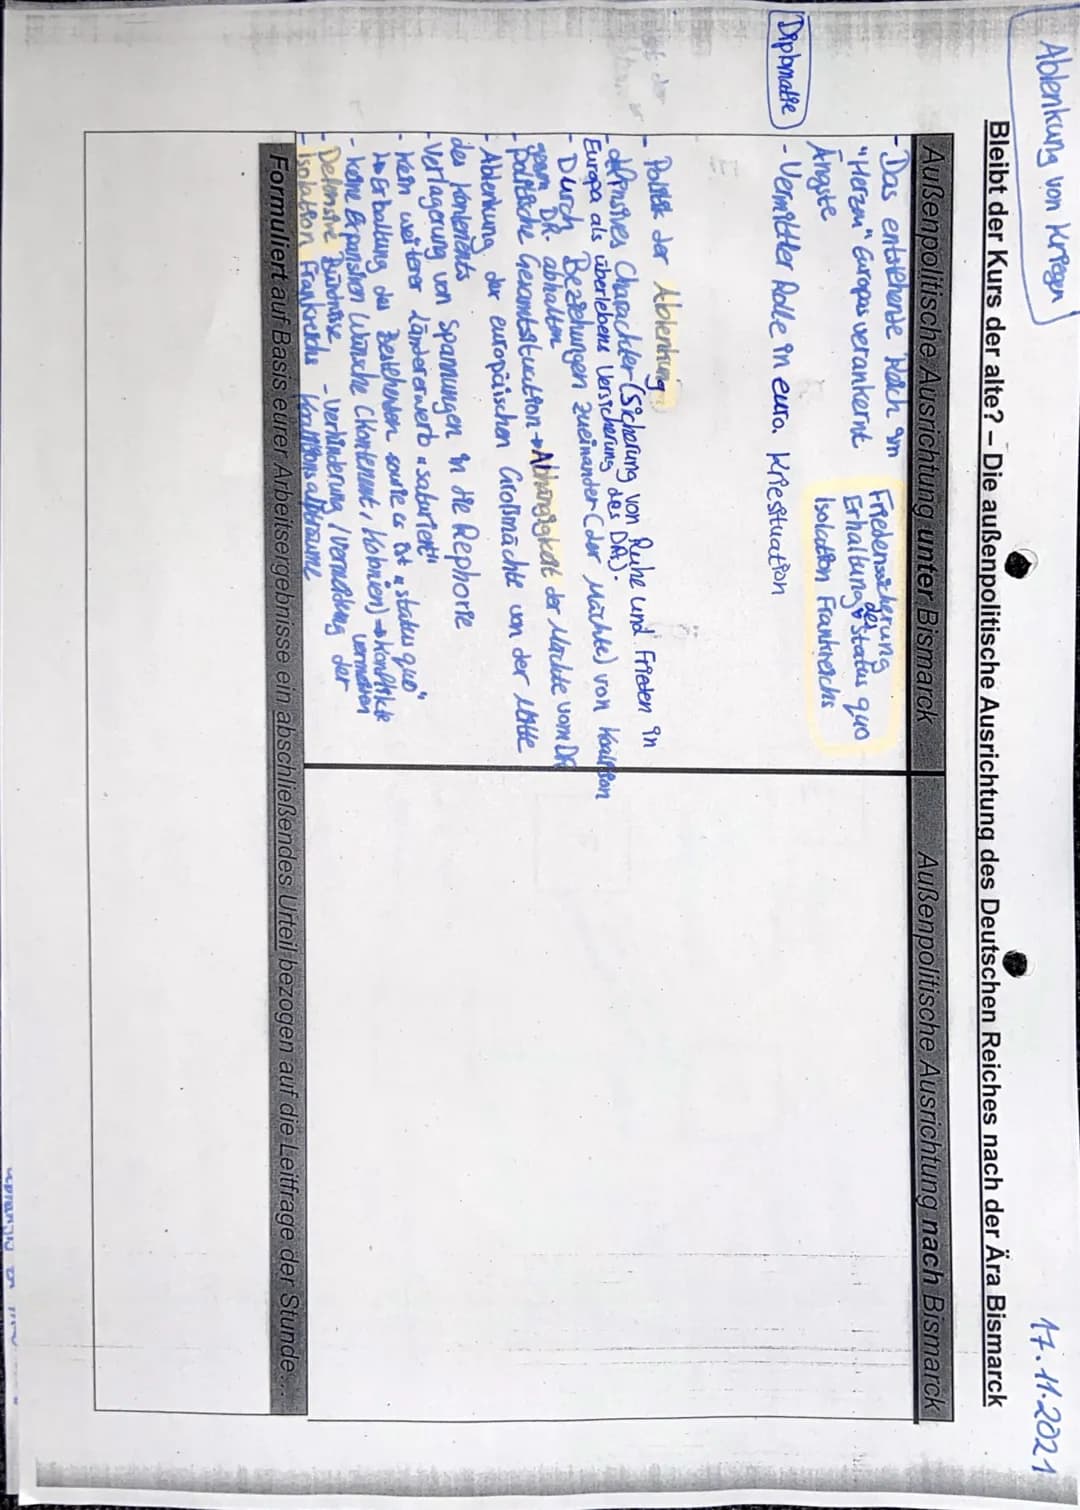 Ablenkung von Kriegen
17.11.2021
Bleibt der Kurs der alte? – Die außenpolitische Ausrichtung des Deutschen Reiches nach der Ära Bismarck
Außenpolitische Ausrichtung unter Bismarck
Außenpolitische Ausrichtung nach Bismarck
- Das entstehende Reich im
"Herzen" Europas verankernt
Ängste
Friedenssicherung
Erhaltung des status quo
Isolation Frankreichs
Diplomatie
- Vermittler Rolle in euro. Kriesituation
- Politik der Ablenkung
- defensives Charackter (Sicherung von Ruhe und Frieden in
Europa als überlebens Versicherung des DR).
- Durch Beziehungen zueinander (der Mächte) von Koalition
gegen DR. abhalten
- politische Gesamtsituation → Abhängigkeit der Mächte vom DR
- Ablenkung der europäischen Großmächte von der Mitte
des Kontinents
- Verlagerung von Spannungen in die Repherie
- kein weiterer Ländererwerb "saturiert"
→ Erhaltung des Bestehenden sowie es ist "status quo"
- keine Expansion Wünsche (Kontinent, Kolonien) → Konflikte
vermeiden
- Defensive Bündnisse - Verhinderung / Vermeidung der
- Isolation Frankreichs Koalitionsalpträume
Formuliert auf Basis eurer Arbeitsergebnisse ein abschließendes Urteil bezogen auf die Leitfrage der Stunde...